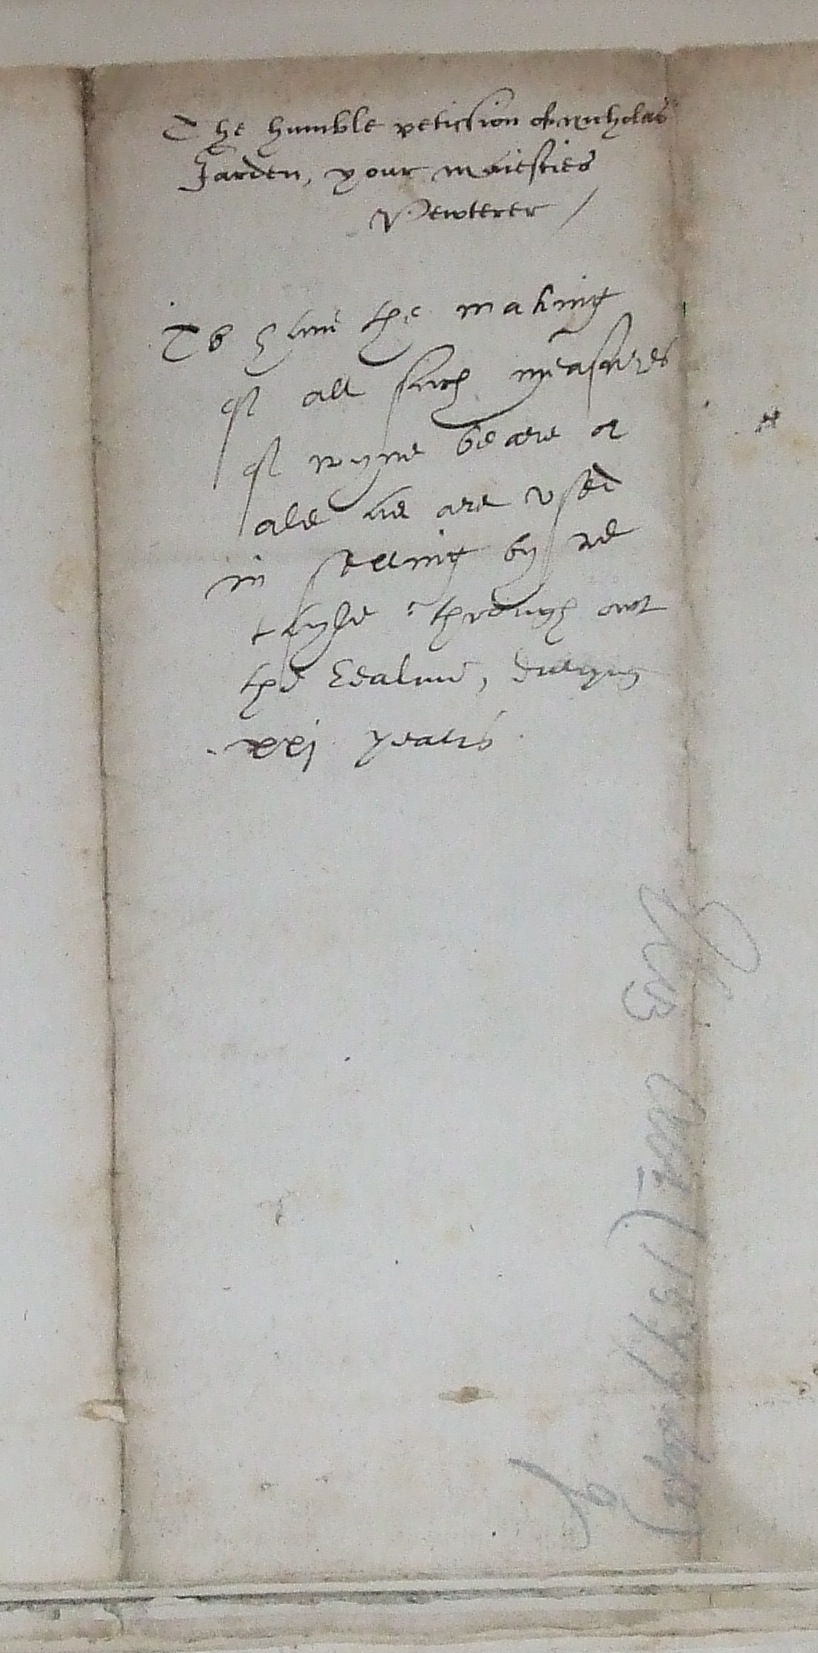 The humble peticion of Nicholas
Jarden, your Maiesties
Pewterer /
To haue the making
of all such measures
of wyne beare or
ale as are vsed
in selling by re
tayle throughout
the Realme, during
xxj yeares